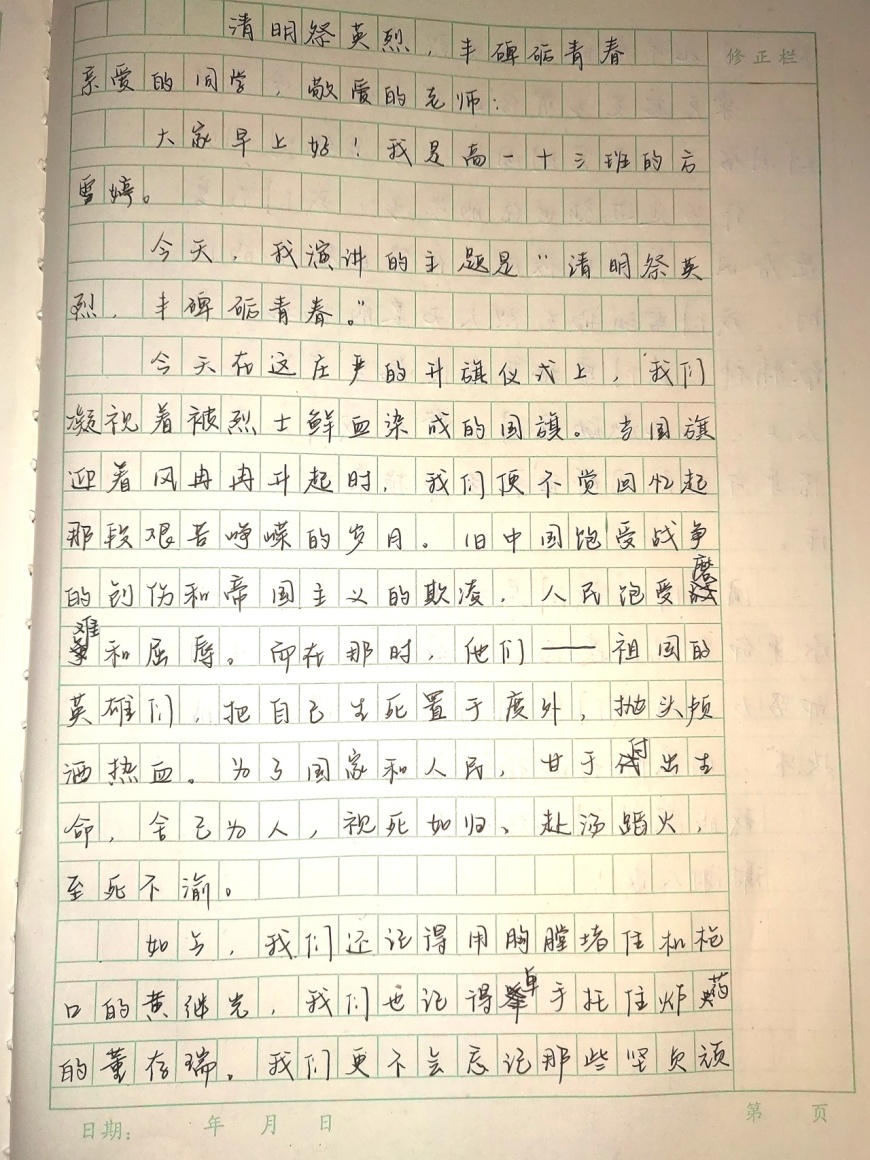 清明祭英烈，丰碑砺青春
修正栏
亲爱的同学，敬爱的老师：
大家早上好！我是高一十三班的方
雪婷。
今天，我演讲的主题是“清明祭英
烈，丰碑砺青春。”
今天在这庄严的升旗仪式上，我们
凝视着被烈士鲜血染成的国旗。当国旗
迎着风冉冉升起时，我们便不觉回忆起
那段艰苦峥嵘的岁月。旧中国饱受战争
的创伤和帝国主义的欺凌，人民饱受磨
难和屈辱。而在那时，他们——祖国的
英雄们，把自己生死置于度外，抛头颅
洒热血。为了国家和人民，甘于付出生
命，舍己为人，视死如归、赴汤蹈火，
至死不渝。
如今，我们还记得用胸膛堵住机枪
口的黄继光，我们也记得单手托住炸药
的董存瑞。我们更不会忘记那些坚贞顽
日期： 年 月 日
第 页